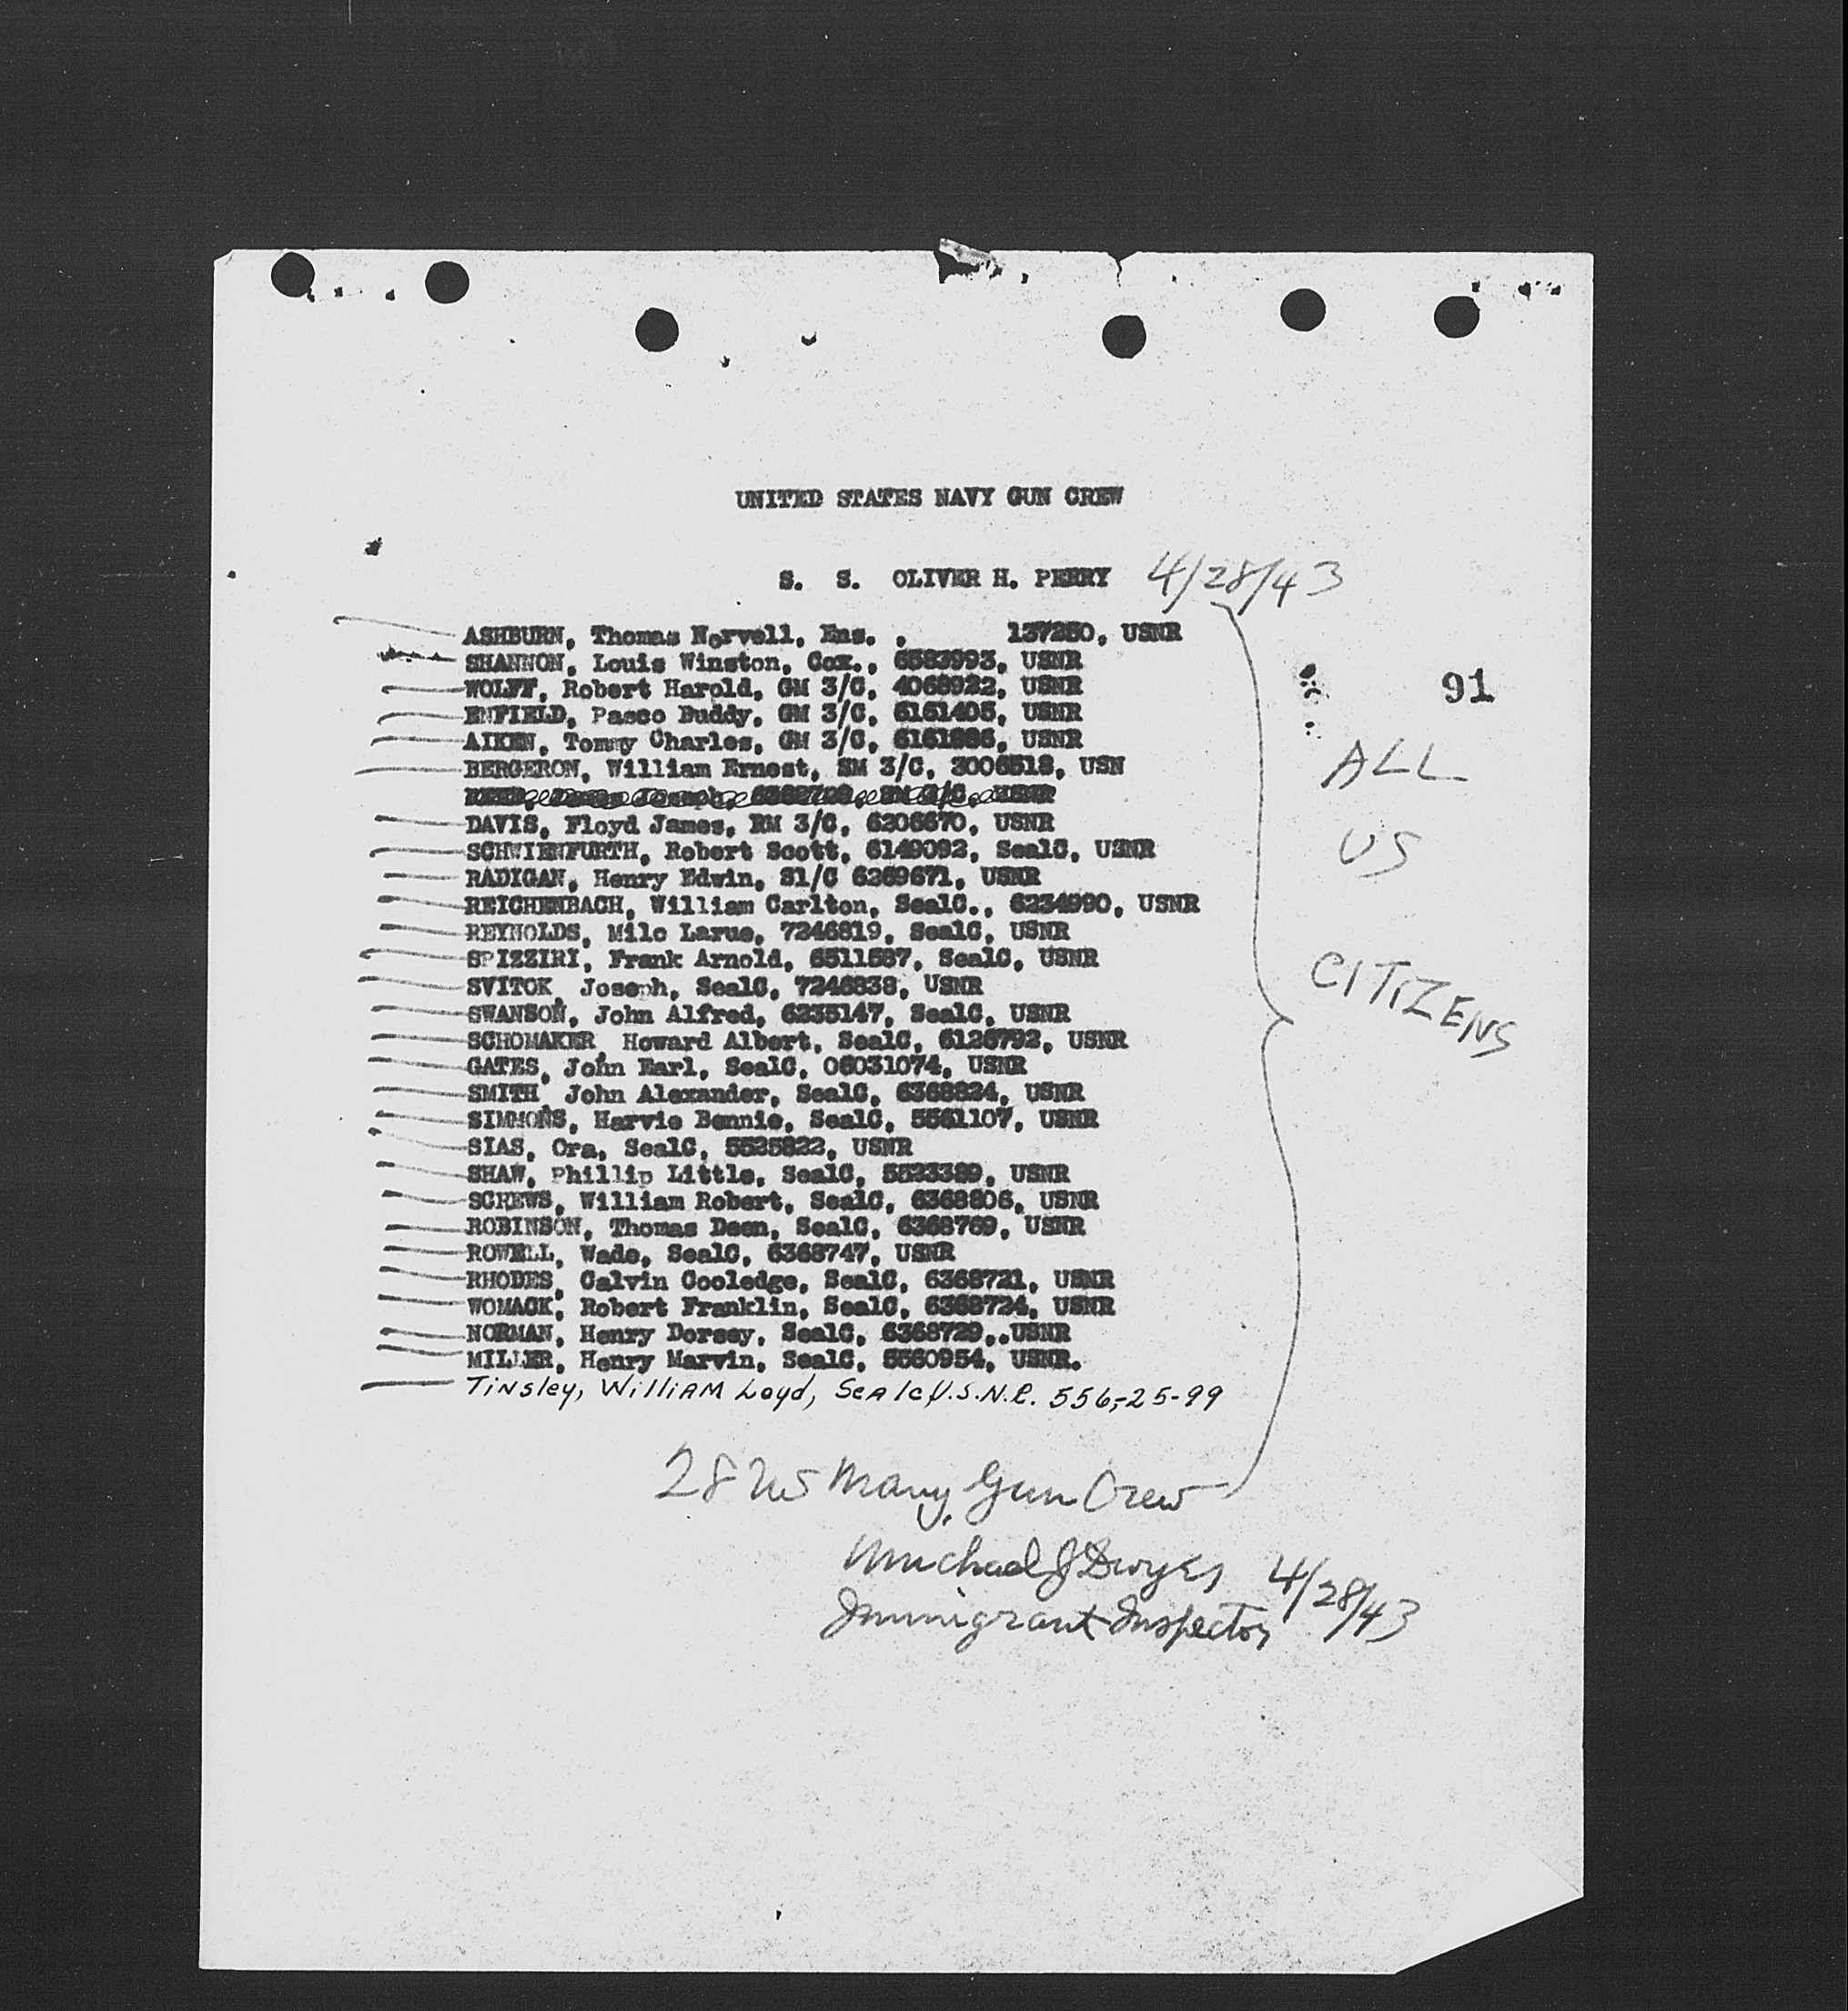 UNITED STATES NAVY GUN CREW
S. S. OLIVER H. PERRY 4/28/43
ASHBURN, Thomas Norvell, Ens. , 137250, USNR
SHANNON, Louis Winston, Cox., 6583993, USNR
WOLFF, Robert Harold, GM 3/C, 4068922, USNR
ENFIELD, Pasco Buddy, GM 3/C, 6161405, USNR
AIKEN, Tommy Charles, GM 3/C, 6161986, USNR
BERGERON, William Ernest, SM 3/C, 3006518, USN
DAVIS, Floyd James, RM 3/C, 6206670, USNR
SCHWIENFURTH, Robert Scott, 6149092, Sea1C, USNR
RADIGAN, Henry Edwin, S1/C 6269671, USNR
REICHENBACH, William Carlton, Sea1C., 6234990, USNR
REYNOLDS, Milo Larue, 7246819, Sea1C, USNR
SPIZZIRI, Frank Arnold, 6511587, Sea1C, USNR
SVITOK, Joseph, Sea1C, 7246838, USNR
SWANSON, John Alfred, 6235147, Sea1C, USNR
SCHOMAKER, Howard Albert, Sea1C, 6126792, USNR
GATES, John Earl, Sea1C, 06031074, USNR
SMITH, John Alexander, Sea1C, 6368824, USNR
SIMMONS, Harvie Bennie, Sea1C, 5561107, USNR
SIAS, Ora, Sea1C, 5525822, USNR
SHAW, Phillip Little, Sea1C, 5523389, USNR
SCREWS, William Robert, Sea1C, 6368806, USNR
ROBINSON, Thomas Deen, Sea1C, 6368769, USNR
ROWELL, Wade, Sea1C, 6368747, USNR
RHODES, Calvin Cooledge, Sea1C, 6368721, USNR
WOMACK, Robert Franklin, Sea1C, 6368724, USNR
NORMAN, Henry Dorsey, Sea1C, 6368729,.USNR
MILLER, Henry Marvin, Sea1C, 5560954, USNR.
Tinsley, William Loyd, Sea 1c, U.S.N.R. 556-25-99
91
ALL
US
CITIZENS
28 US Navy Gun Crew
Michael J Dwyer 4/28/43
Immigrant Inspector